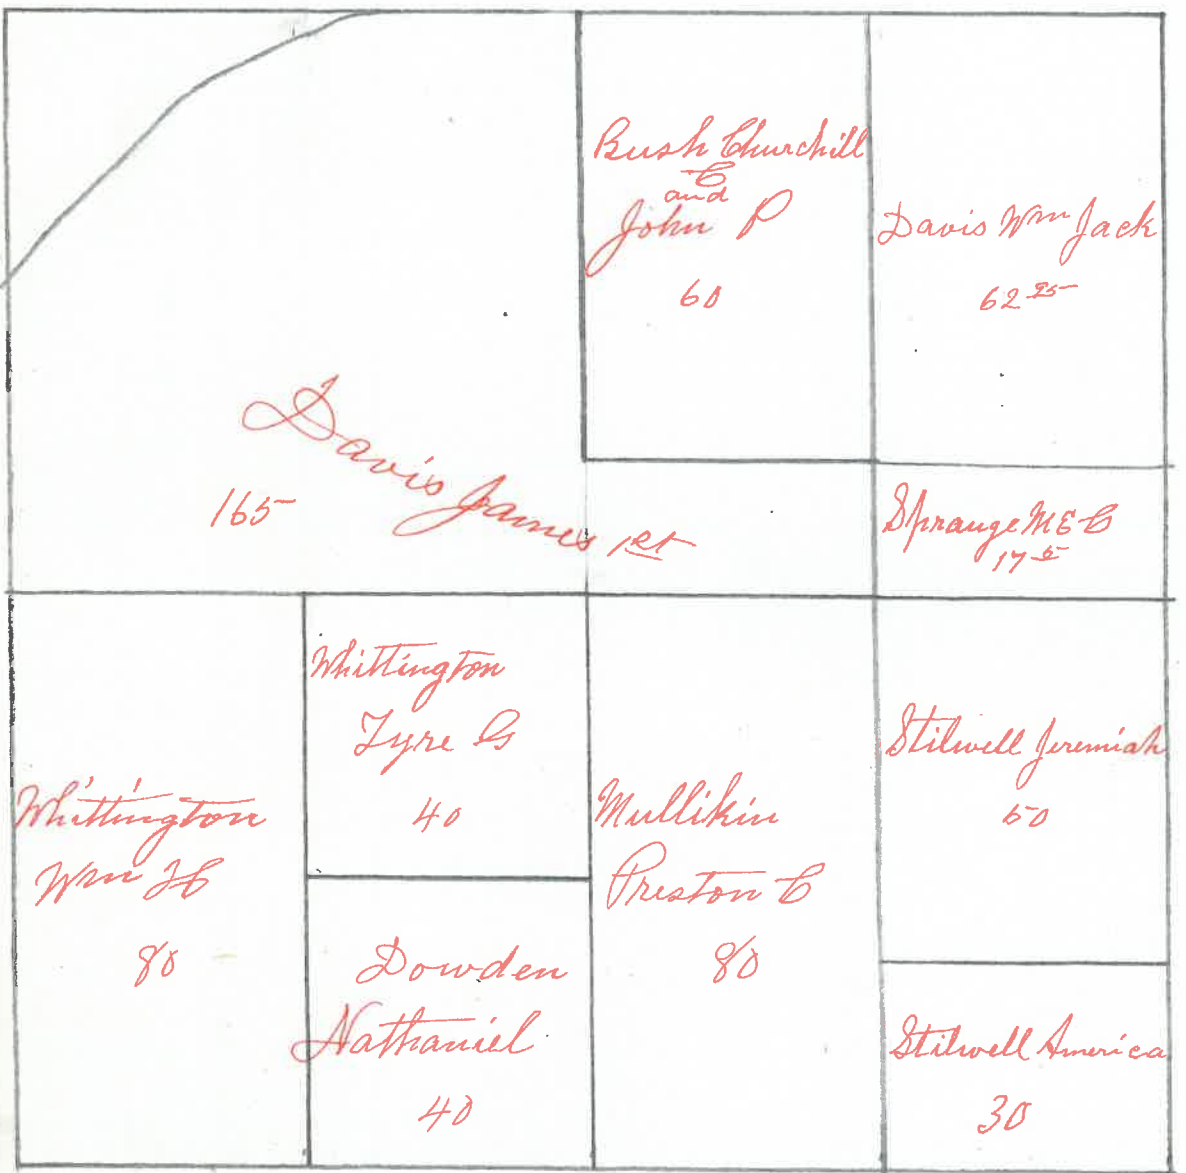 Bush Churchill
C
and
John P
60
Davis Wm Jack
62 25
Davis James 1st
165
Sprauge M E C
17 5
Whittington
Wm H C
80
Whittington
Tyre G
40
Dowden
Nathaniel
40
Mullikin
Preston C
80
Stilwell Jeremiah
50
Stilwell America
30